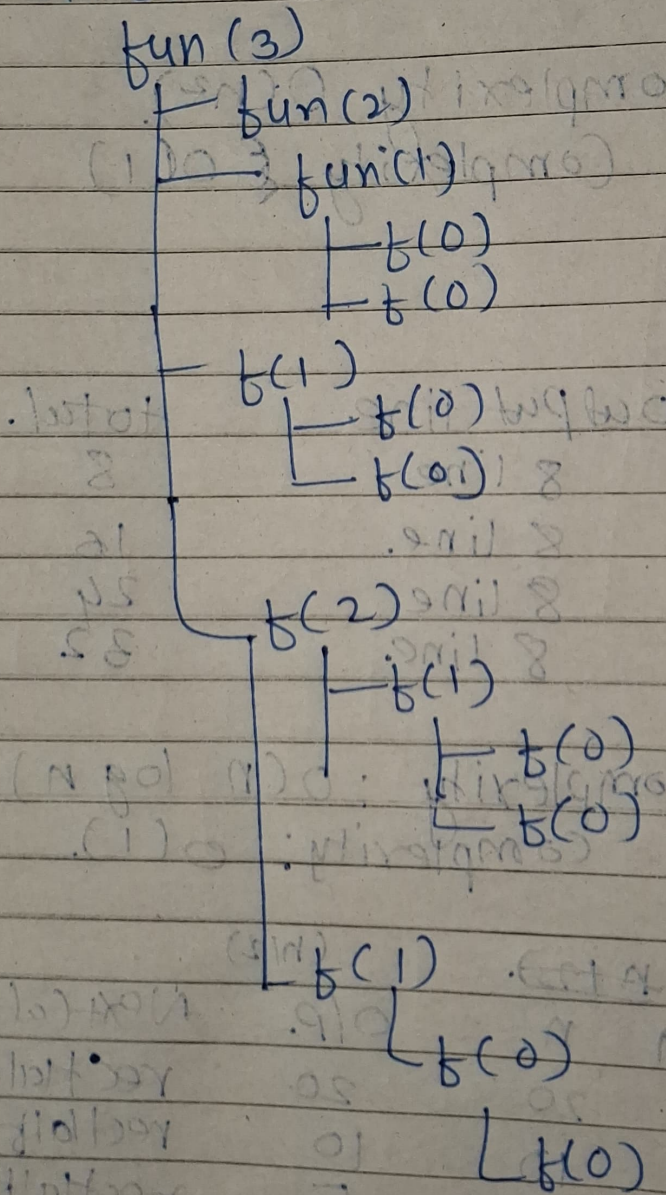 fun (3)
fun (2)
fun(1)
f(0)
f(0)
f(1)
f(0)
f(0)
f(2)
f(1)
f(0)
f(0)
f(1)
f(0)
f(0)